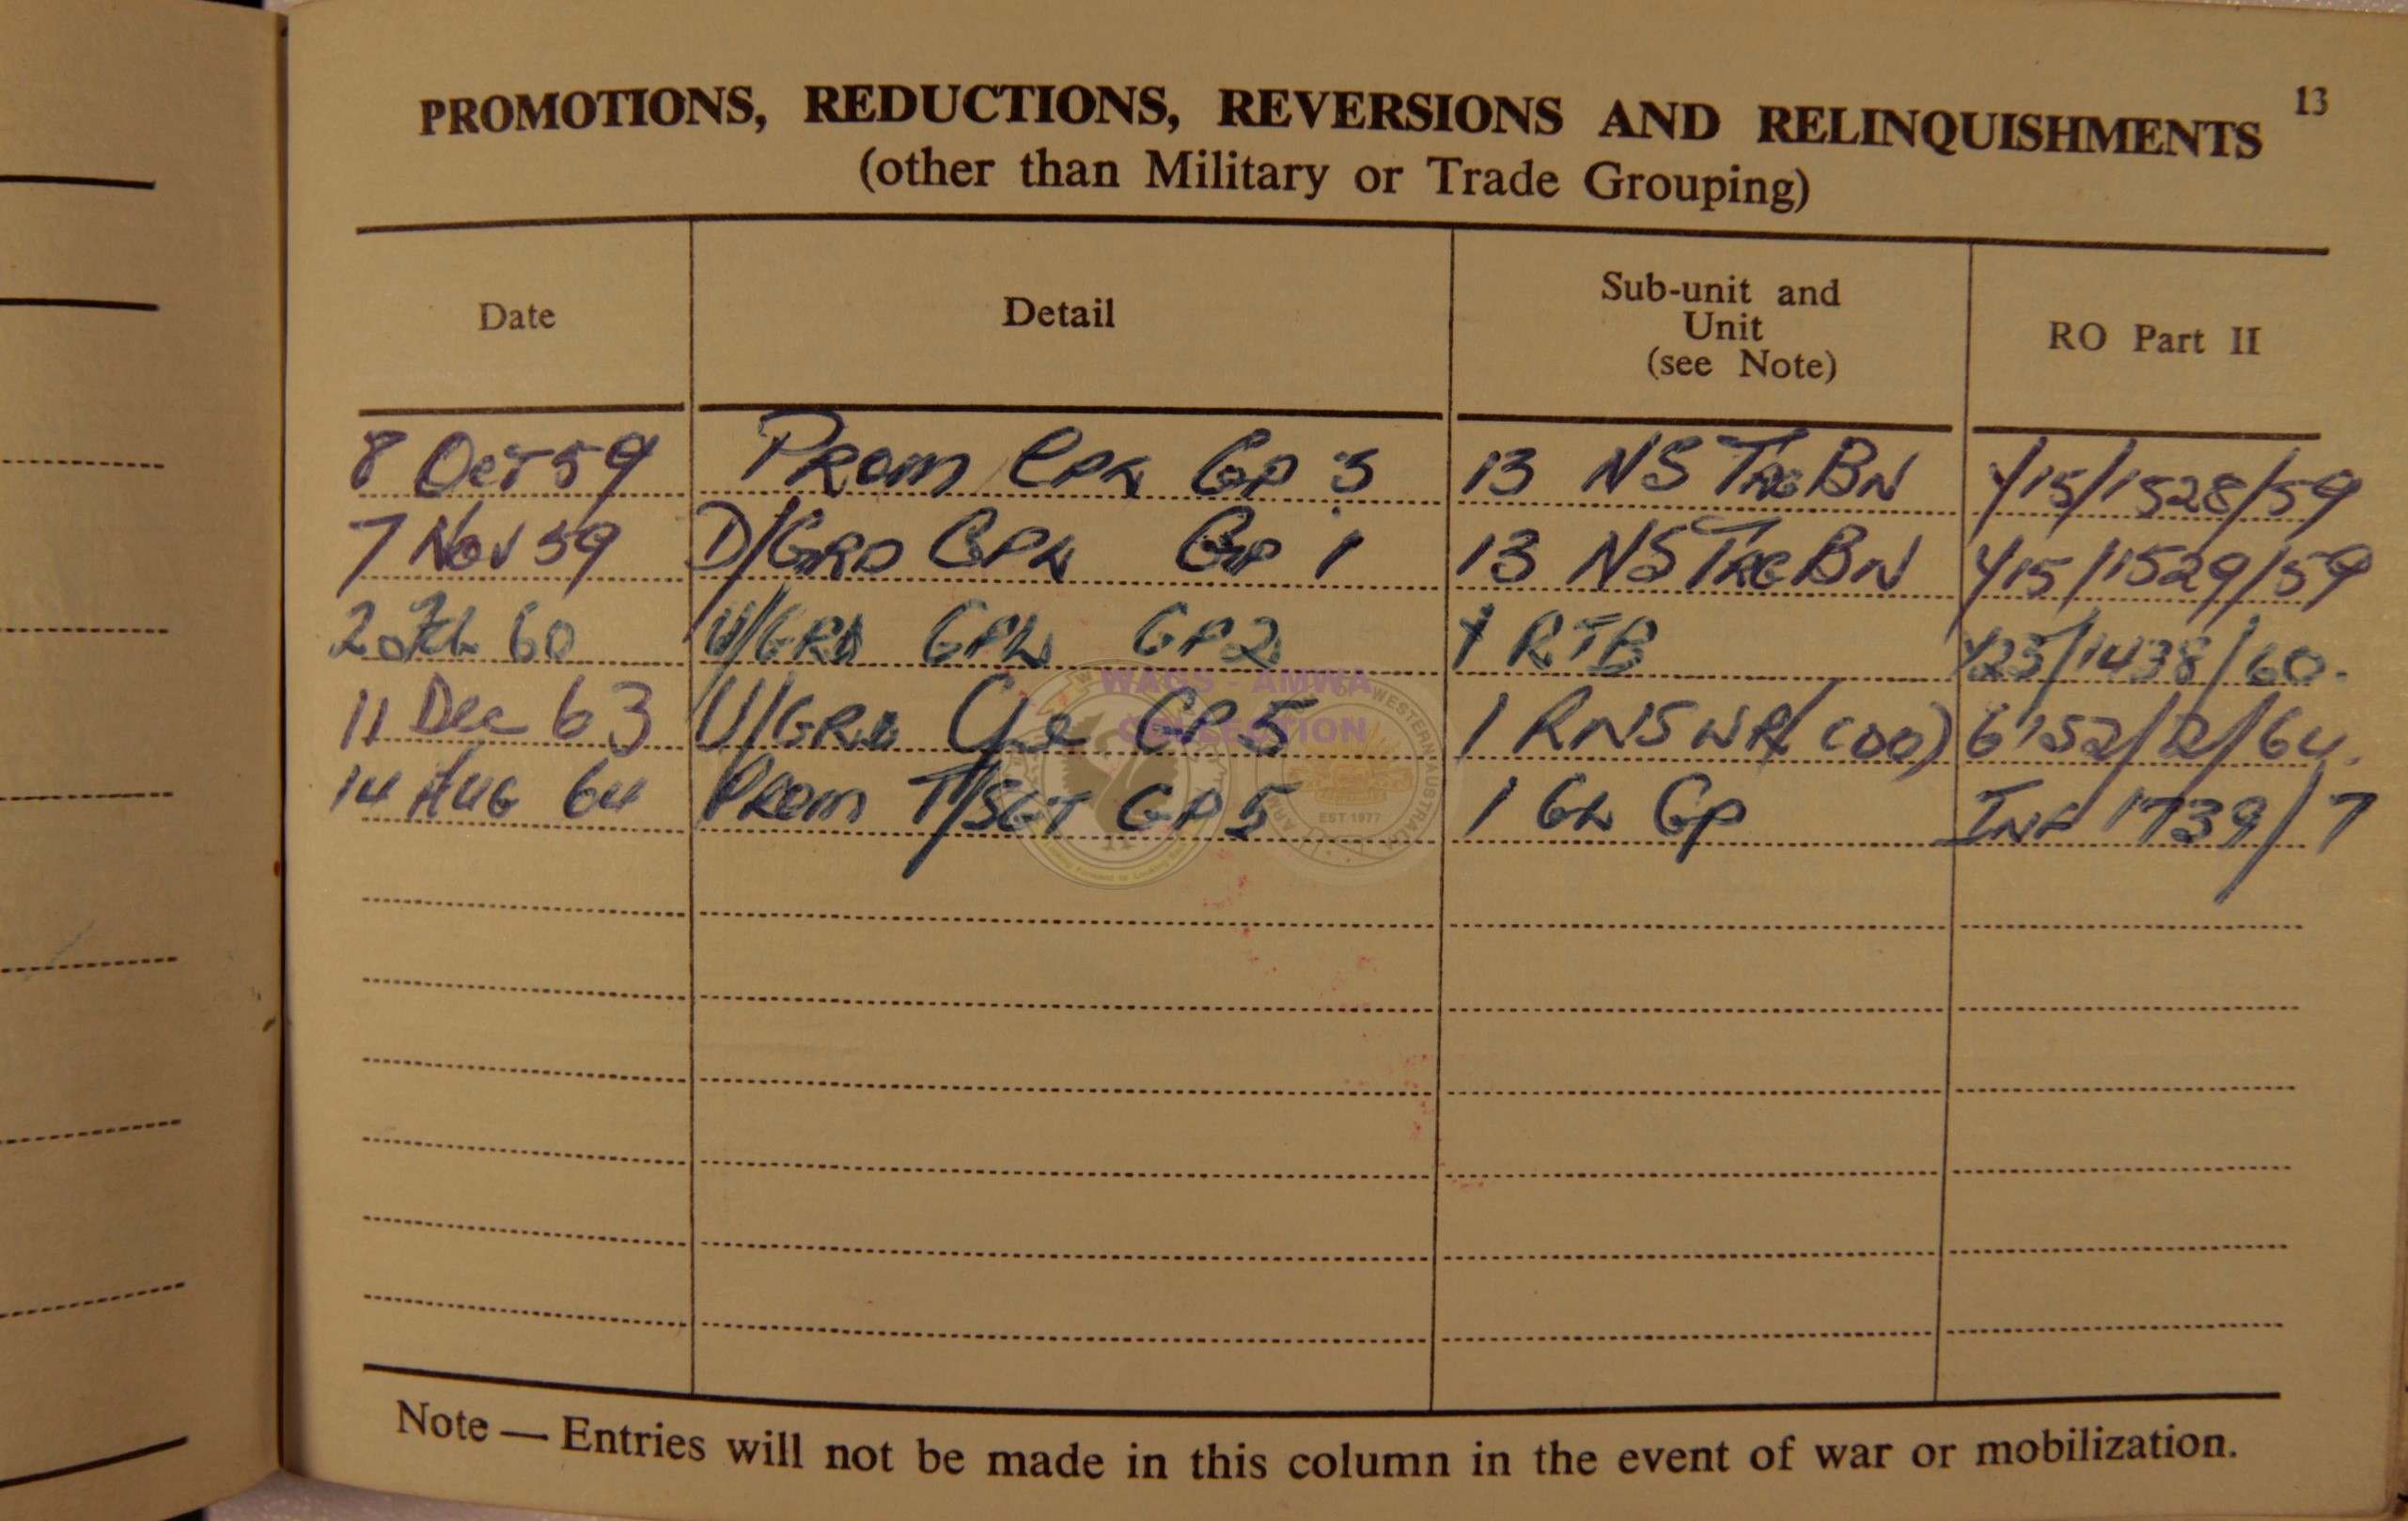 13
PROMOTIONS, REDUCTIONS, REVERSIONS AND RELINQUISHMENTS
(other than Military or Trade Grouping)
Date Detail Sub-unit and Unit (see Note) RO Part II
8 Oct 59 PROM CPL GP 3 13 NS TRG BN Y15/1528/59
7 Nov 59 D/GRD CPL GP 1 13 NS TRG BN Y15/1529/59
2 Feb 60 U/GRD CPL GP 2 1 RTB Y25/1438/60.
11 Dec 63 U/GRD Cpl GP 5 1 RNSWR (CDO) 6152/2/64.
14 AUG 64 PROM T/SGT GP 5 1 GL GP INF 1739/7
WAGS - AMWA
COLLECTION
EST 1977
Note — Entries will not be made in this column in the event of war or mobilization.